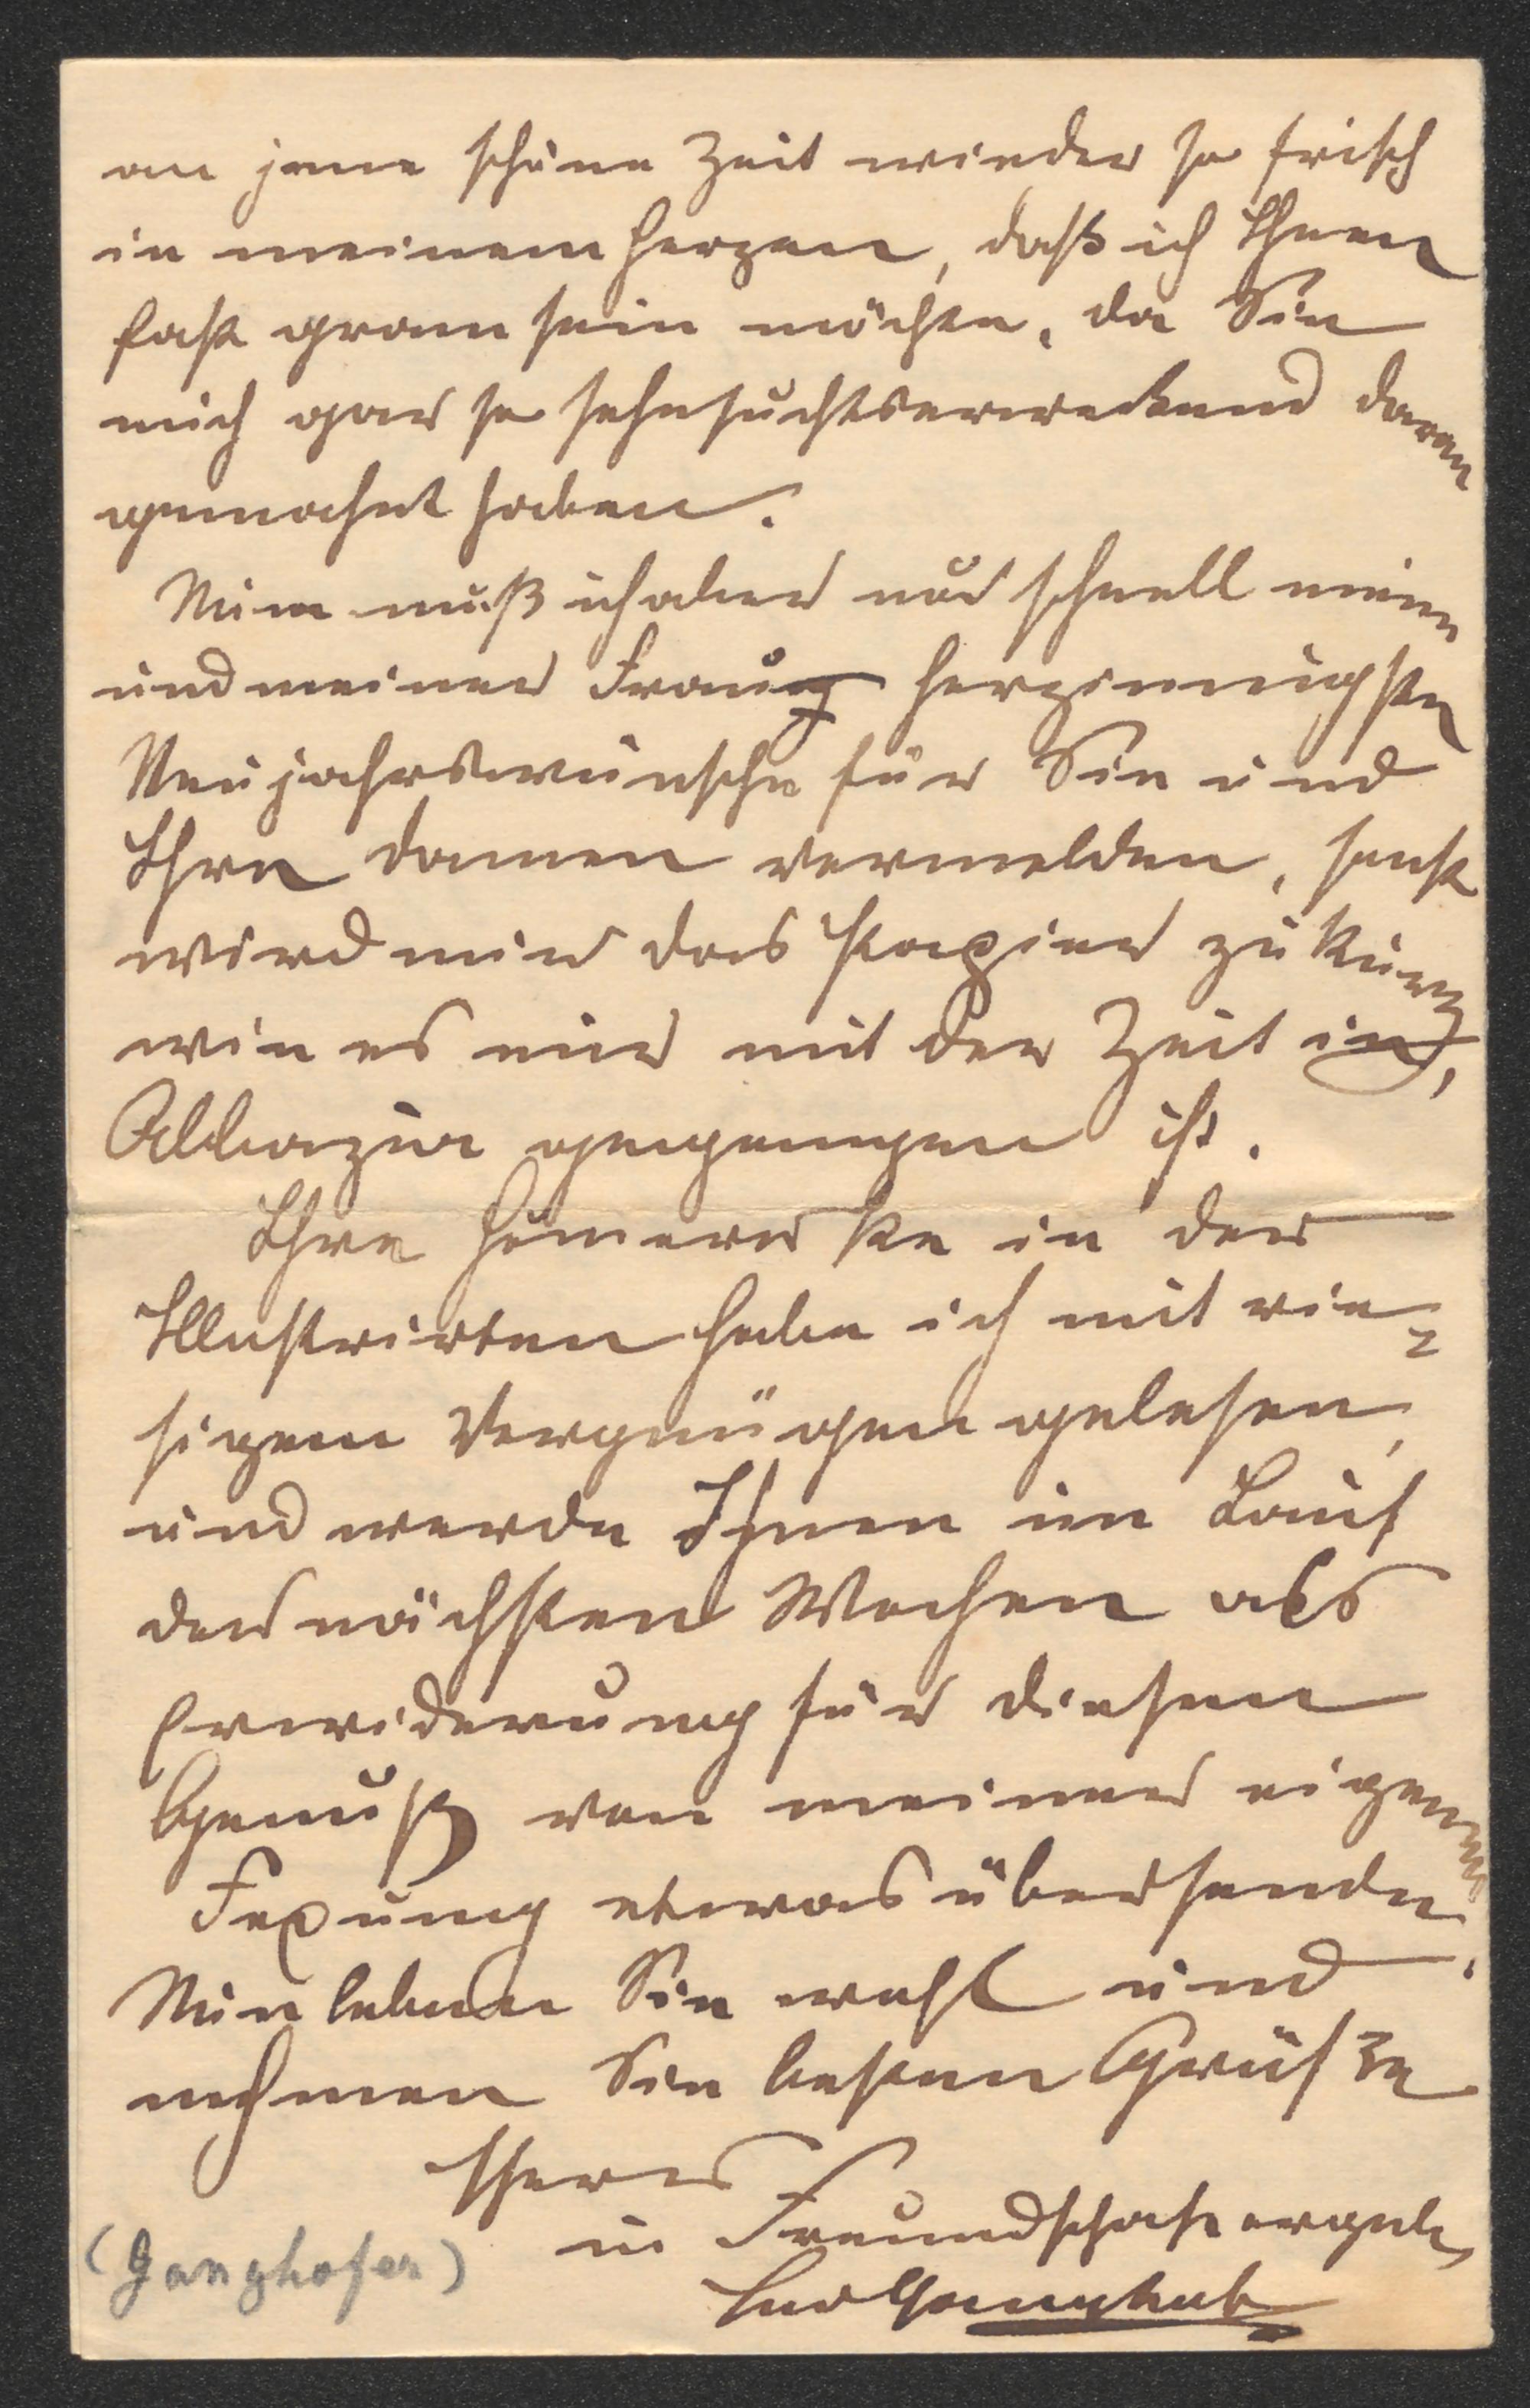 an jene schöne Zeit wieder so frisch
in meinem Herzen, daß ich Ihnen
fast gram sein möchte, da Sie
mich gar so sehnsuchtserweckend daran
gemahnt haben.
Nun muß ich aber nur schnell meine
und meiner Frau herzinnigsten
Neujahrswünsche für Sie und
Ihre Damen vermelden, sonst
wird mir das Papier zu kurz
wie es mir mit der Zeit in
Abbazia gegangen ist.
Ihre Humoreske in der
Illustrirten habe ich mit rie-
sigem Vergnügen gelesen,
und werde Ihnen im Lauf
der nächsten Wochen als
Erwiderung für diesen
Genuß von meiner eigenen
Fexung etwas übersenden.
Nun leben Sie wohl und
nehmen Sie besten Grüße
Ihres
in Freundschaft ergeb.
(Ganghofer)
LudGanghofer